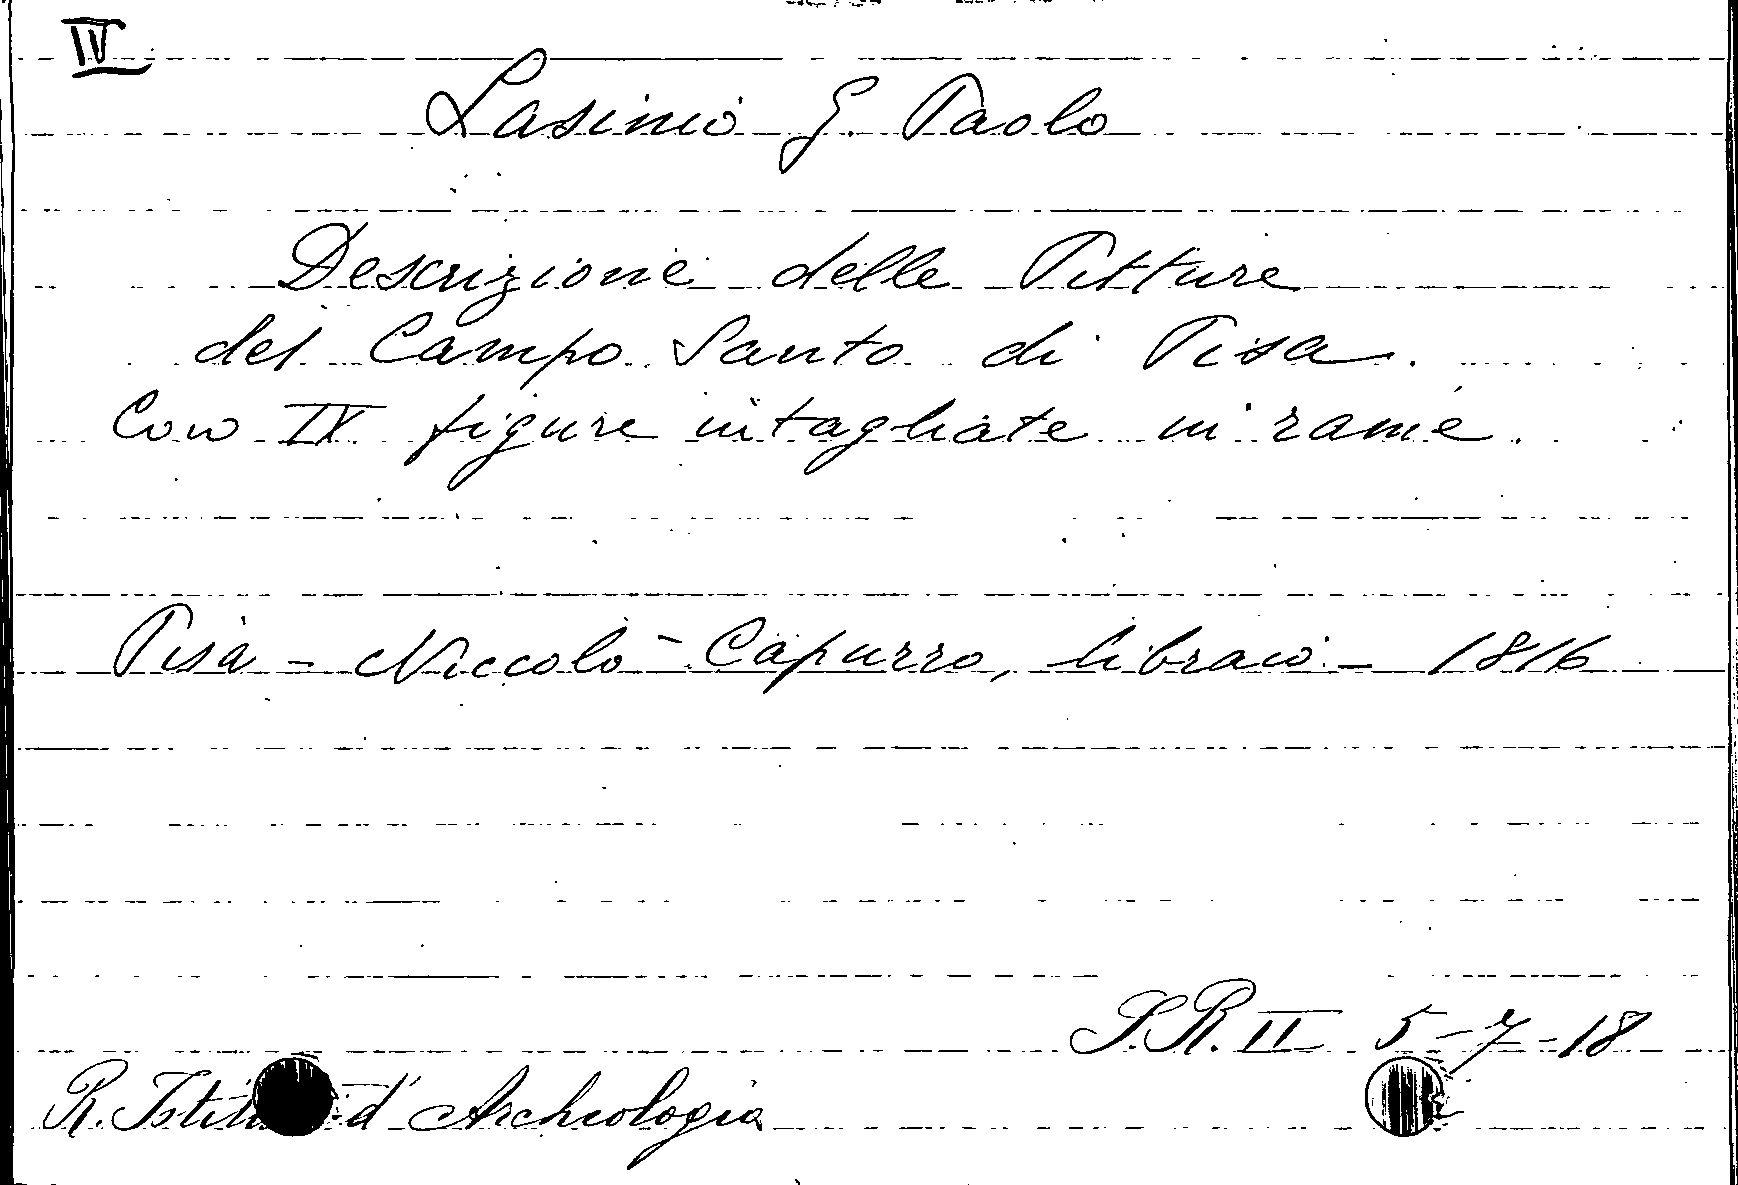 IV
Lasinio G. Paolo
Descrizione delle Pitture
del Campo Santo di Pisa.
Con IX figure intagliate in rame.
Pisa - Niccolò Capurro, libraio - 1816
S.R. II 5-7-18
R. Istit d'Archeologia